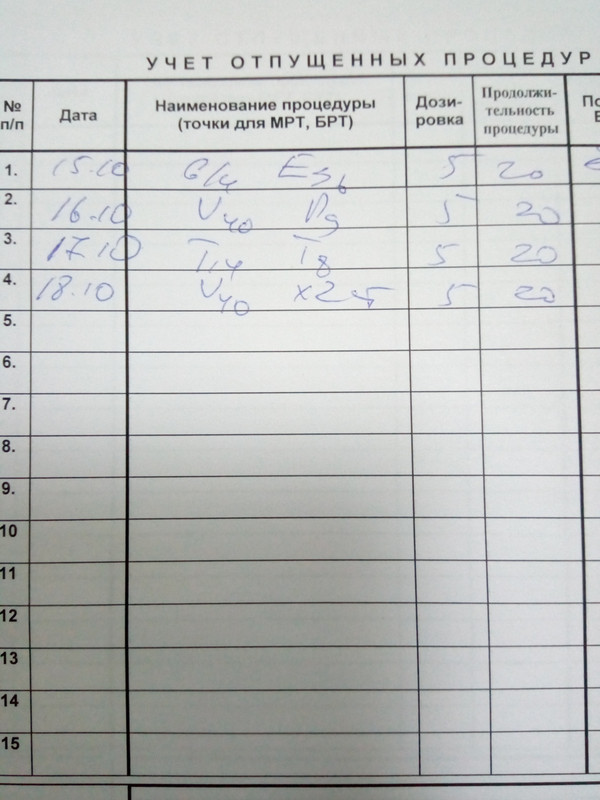 УЧЕТ ОТПУЩЕННЫХ ПРОЦЕДУР
№ п/п Дата Наименование процедуры (точки для МРТ, БРТ) Дози-ровка Продолжи-тельность процедуры По
1. 15.10 G/4 E36 5 20
2. 16.10 V40 5 20
3. 17.10 T14 T8 5 20
4. 18.10 V40 x2 5 20
5.
6.
7.
8.
9.
10
11
12
13
14
15